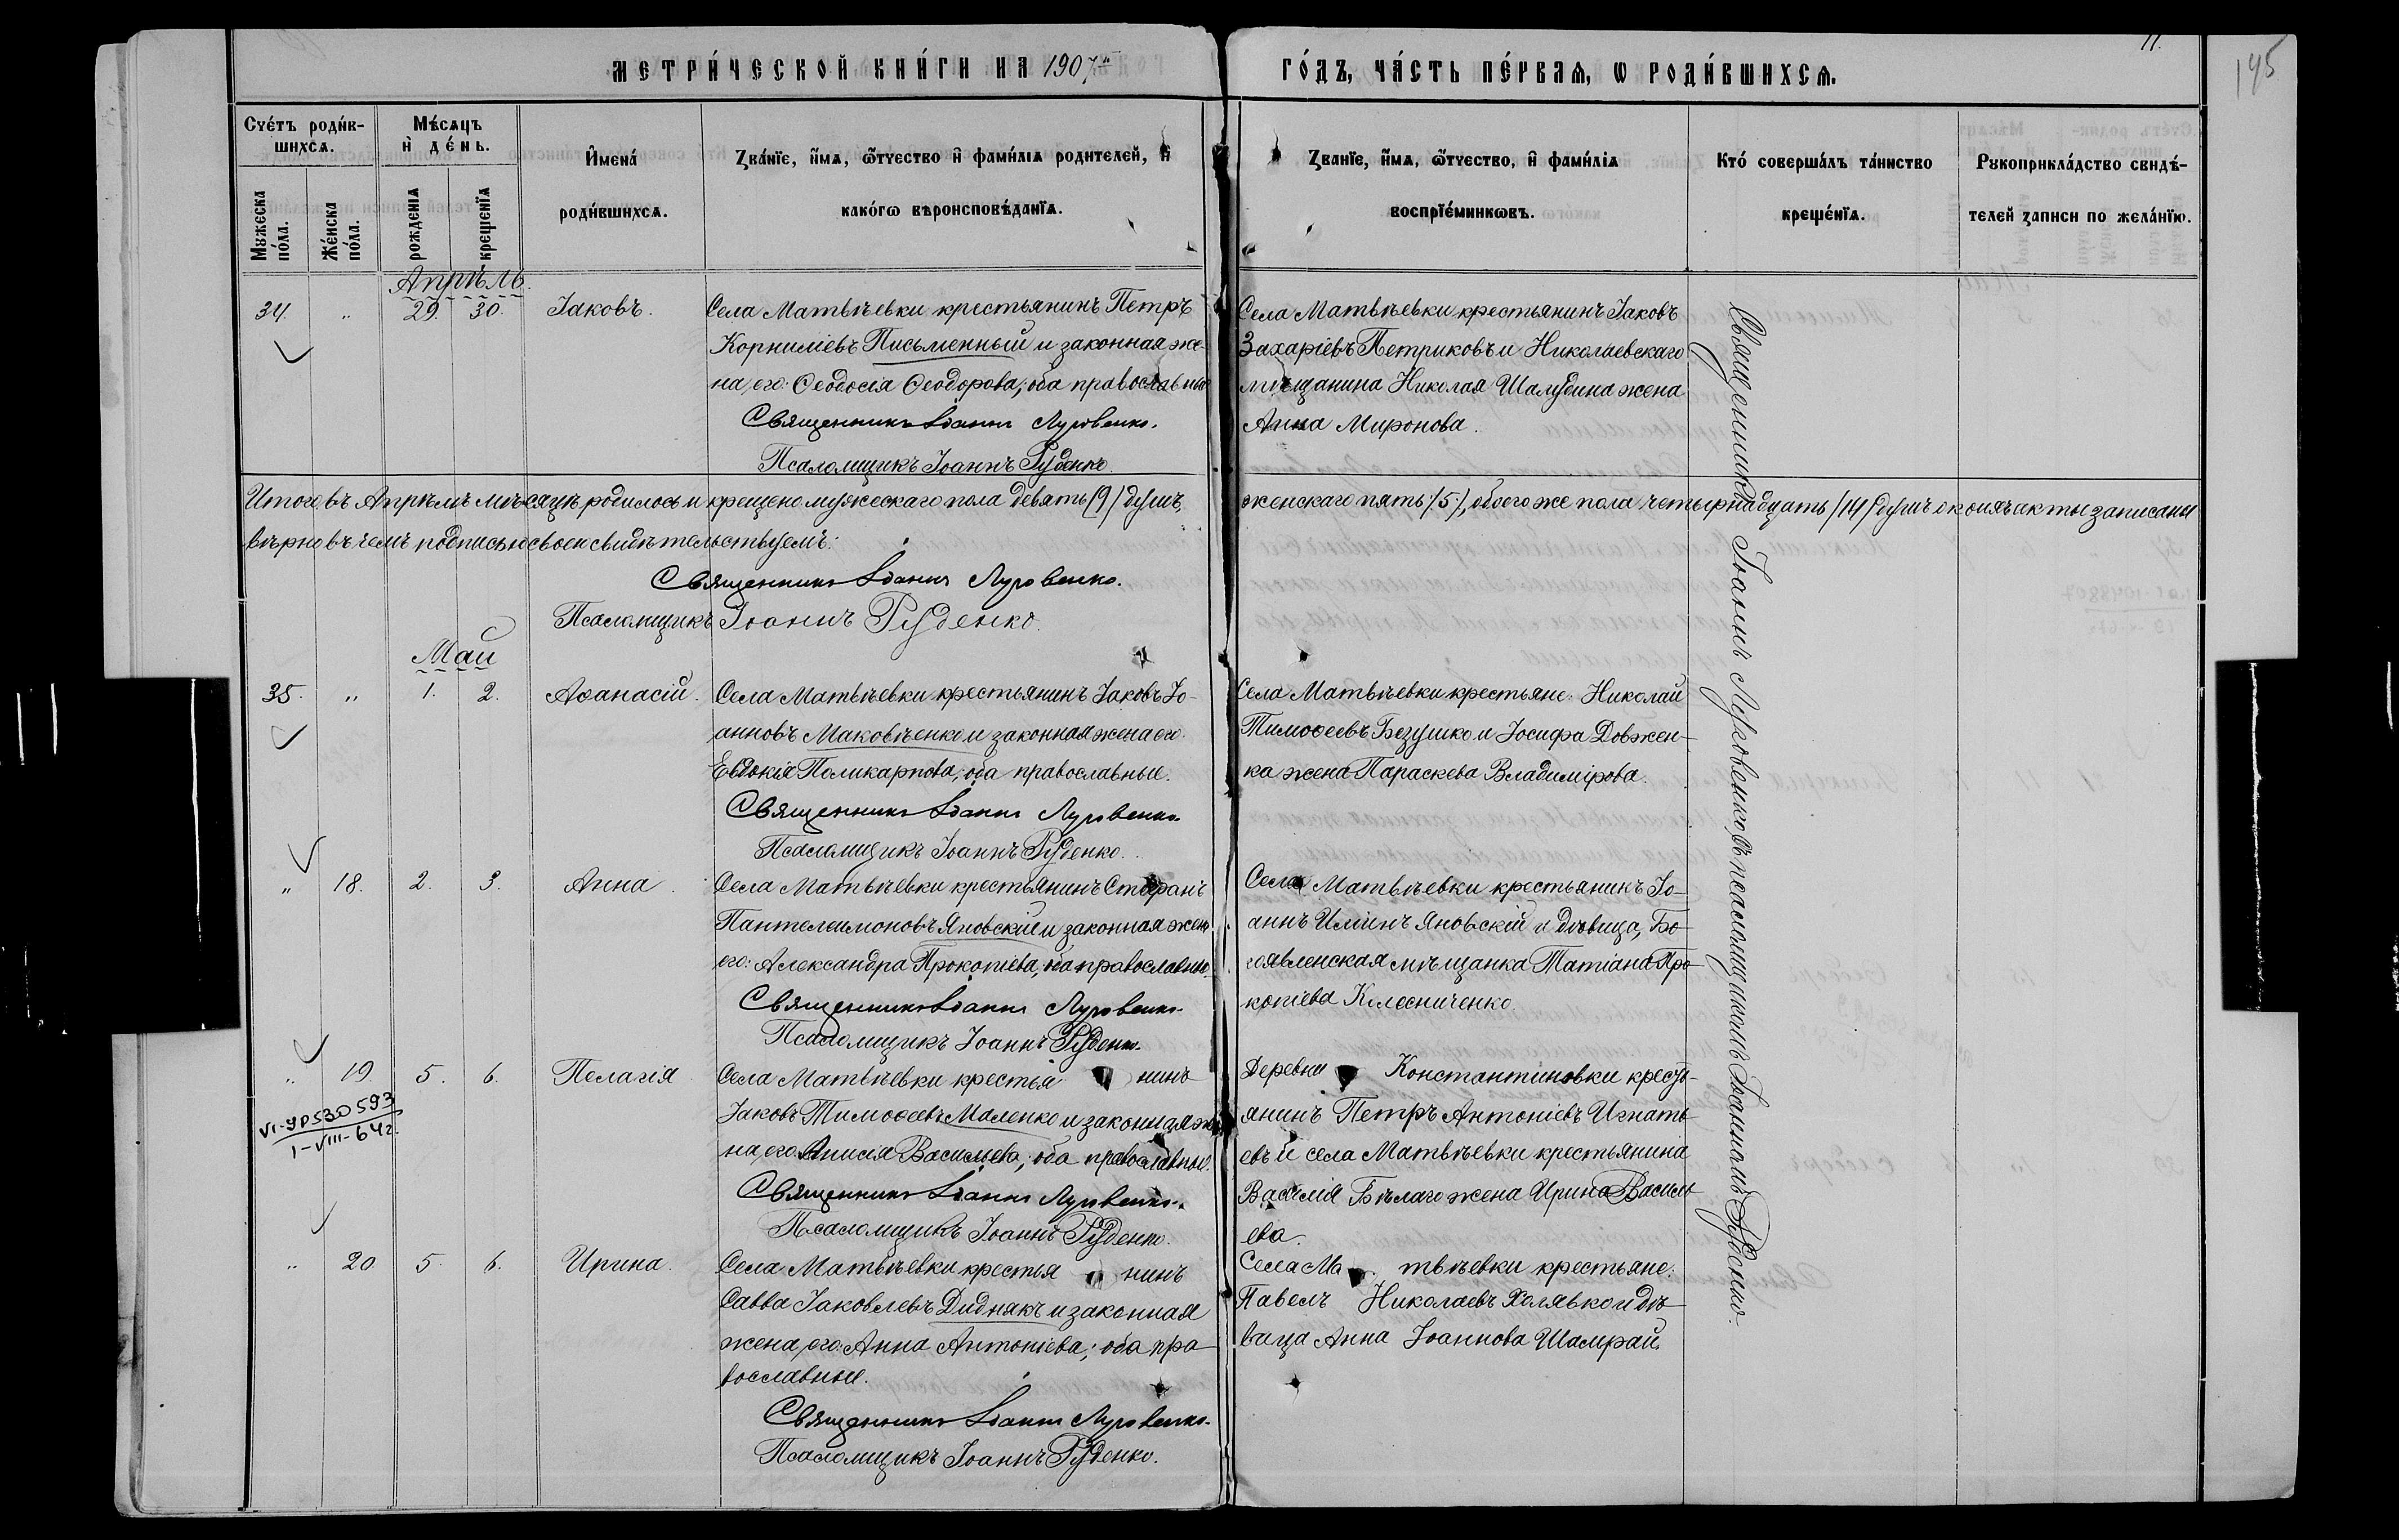 МЕТРИ́ЧЕСКОЙ КНИ́ГИ НА 1907й ГО́ДЪ, ЧА́СТЬ ПЕ́РВАѦ, Ѡ РОДИ́ВШИХСѦ.
11.
145
Счéтъ роди́в-
шихсѧ.
Мужеска по́ла.
Же́нска по́ла.
Мѣ́сѧцъ
и҆ де́нь.
рожденїѧ
крещенїѧ
И҆мена́
роди́вшихсѧ.
Зва́нїе, и҆́мѧ, ѻ҆́тчество и҆ фами́лїѧ родителей, и҆
како́гѡ вѣроисповѣ́данїѧ.
Зва́нїе, и҆́мѧ, ѻ҆́тчество, и҆ фами́лїѧ
воспрїе́мниковъ.
Кто́ соверша́лъ та́инство
креще́нїѧ.
Рꙋкоприкла́дство свидѣ́-
телей записи по жела́нїю.
Апрѣль.
34. " 29. 30. Іаковъ.
Села Матвѣевки крестьянинъ Петръ
Корниліевъ Письменный и законная же-
на, его: Ѳеодосія Ѳеодорова; оба православные
Священникъ Іоаннъ Луговенко.
Псаломщикъ Іоаннъ Руденко.
Села Матвѣевки крестьянинъ Іаковъ
Захаріевъ Петриковъ и Николаевскаго
мѣщанина Николая Шалудина жена
Анна Миронова.
Итого въ Апрѣлѣ мѣсяцѣ родилось и крещено мужескаго пола девять (9) душъ, женскаго пять (5), обоего же пола четырнадцать (14) душъ о коихъ акты записаны
вѣрно въ чемъ подписью своею свидѣтельствуемъ:
Священникъ Іоаннъ Луговенко.
Псаломщикъ Іоаннъ Руденко.
Май
35. " 1. 2. Аѳанасій.
Села Матвѣевки крестьянинъ Іаковъ Іо-
анновъ Маковѣенко и законная жена его:
Евдокія Поликарпова; оба православные.
Священникъ Іоаннъ Луговенко
Псаломщикъ Іоаннъ Руденко.
Села Матвѣевки крестьяне: Николай
Тимоѳеевъ Безушко и Іосифа Довжен-
ка жена Параскева Владимірова.
" 18. 2. 3. Анна.
Села Матвѣевки крестьянинъ Стефанъ
Пантелеимоновъ Яновскій и законная жена
его: Александра Прокопіева; оба православные.
Священникъ Іоаннъ Луговенко.
Псаломщикъ Іоаннъ Руденко.
Села Матвѣевки крестьянинъ Іо-
аннъ Иліинъ Яновскій и дѣвица, Бо-
гоявленская мѣщанка Татіана Про-
копіева Колесниченко.
" 19. 5. 6. Пелагія
VI-УР530593
1-VIII-64г.
Села Матвѣевки крестьянинъ
Іаковъ Тимоѳеевъ Маленко и законная же-
на, его: Анисія Васильева; оба православные.
Священникъ Іоаннъ Луговенко.
Псаломщикъ Іоаннъ Руденко.
Деревни Константиновки кресть-
янинъ Петръ Антоніевъ Игнать-
евъ и села Матвѣевки крестьянина
Василія Бѣлаго жена Ирина Василь-
ева.
" 20 5. 6. Ирина.
Села Матвѣевки крестьянинъ
Савва Іаковлевъ Диднякъ и законная
жена, его: Анна Антоніева; оба пра-
вославные.
Священникъ Іоаннъ Луговенко.
Псаломщикъ Іоаннъ Руденко.
Села Матвѣевки крестьяне:
Павелъ Николаевъ Холявко и дѣ-
вица Анна Іоаннова Шамрай.
Священникъ Іоаннъ Луговенко, съ псаломщикомъ Іоанномъ Руденко.